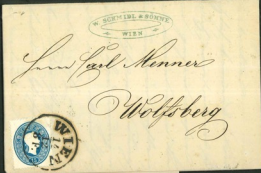 M. SCHMIDL & SÖHNE
WIEN
Herrn Carl Menner
Wolfsberg
WIEN